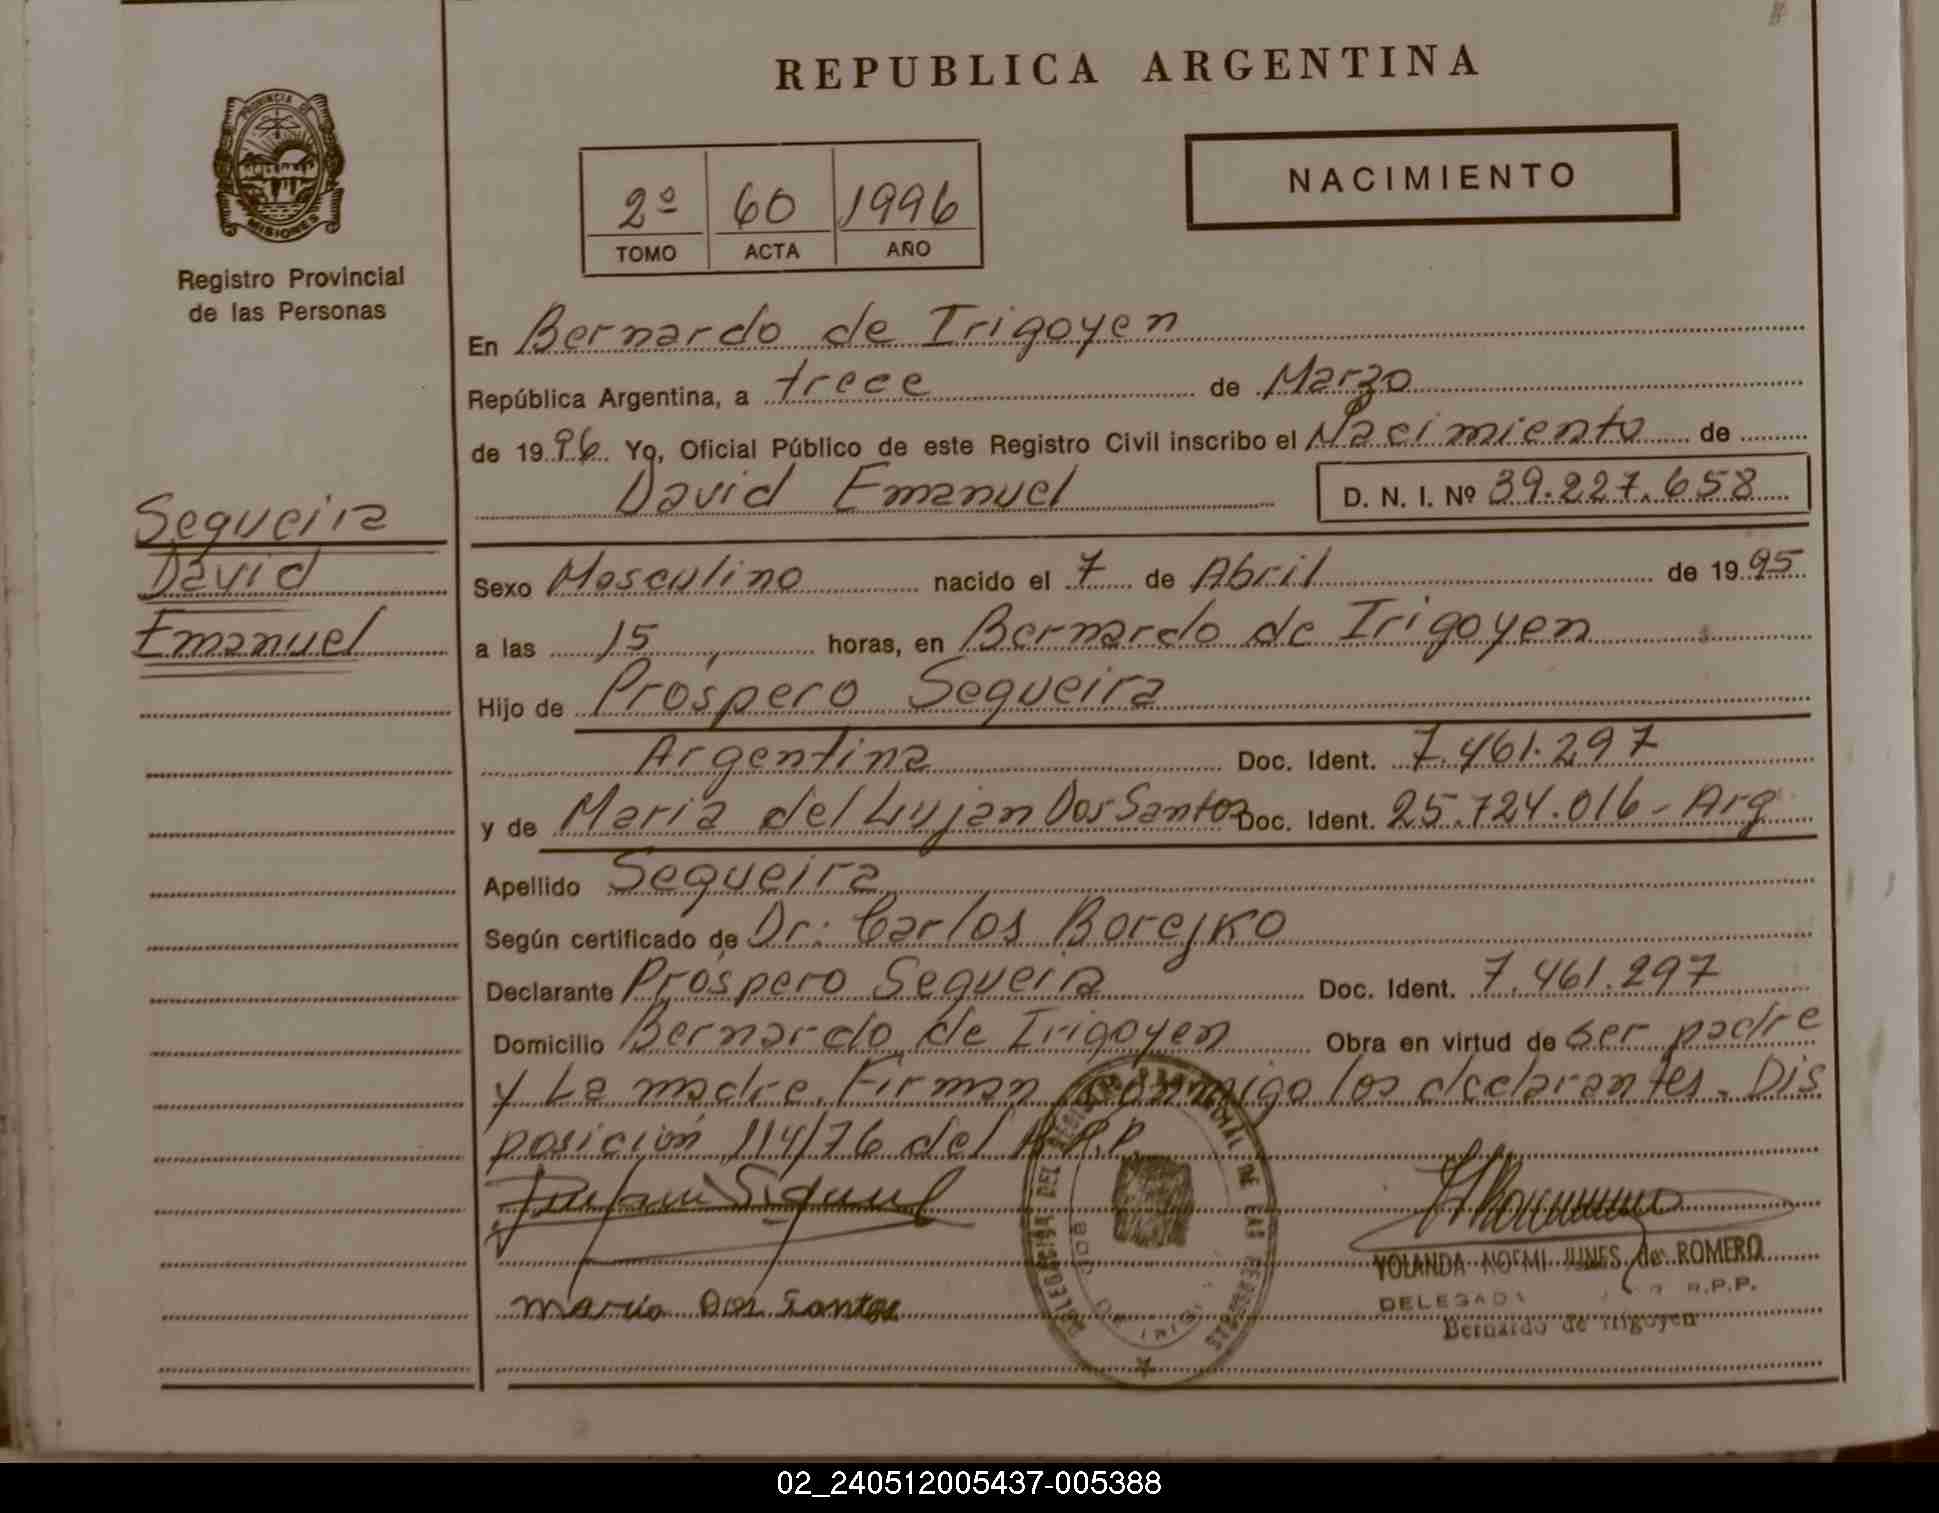 REPUBLICA ARGENTINA
PROVINCIA DE
MISIONES
Registro Provincial
de las Personas
2º 60 1996
TOMO ACTA AÑO
NACIMIENTO
En Bernardo de Irigoyen
República Argentina, a trece de Marzo
de 1996 Yo, Oficial Público de este Registro Civil inscribo el Nacimiento de
David Emanuel D. N. I. Nº 39.227.658
Sequeira
David
Emanuel
Sexo Masculino nacido el 7 de Abril de 1995
a las 15, horas, en Bernardo de Irigoyen
Hijo de Próspero Sequeira
Argentina Doc. Ident. 7.461.297
y de Maria del Lujan Dos Santos Doc. Ident. 25.724.016 - Arg
Apellido Sequeira
Según certificado de Dr: Carlos Borejko
Declarante Próspero Sequeira Doc. Ident. 7.461.297
Domicilio Bernardo de Irigoyen Obra en virtud de ser padre
y La madre. Firman conmigo los declarantes. Dis
posición 114/76 del R.P.P.
DELEGACION DEL REGISTRO PROVINCIAL DE LAS PERSONAS
Maria Dos Santos
YOLANDA NOEMI JUNES de ROMERO
DELEGADA R.P.P.
Bernardo de Irigoyen
02_240512005437-005388